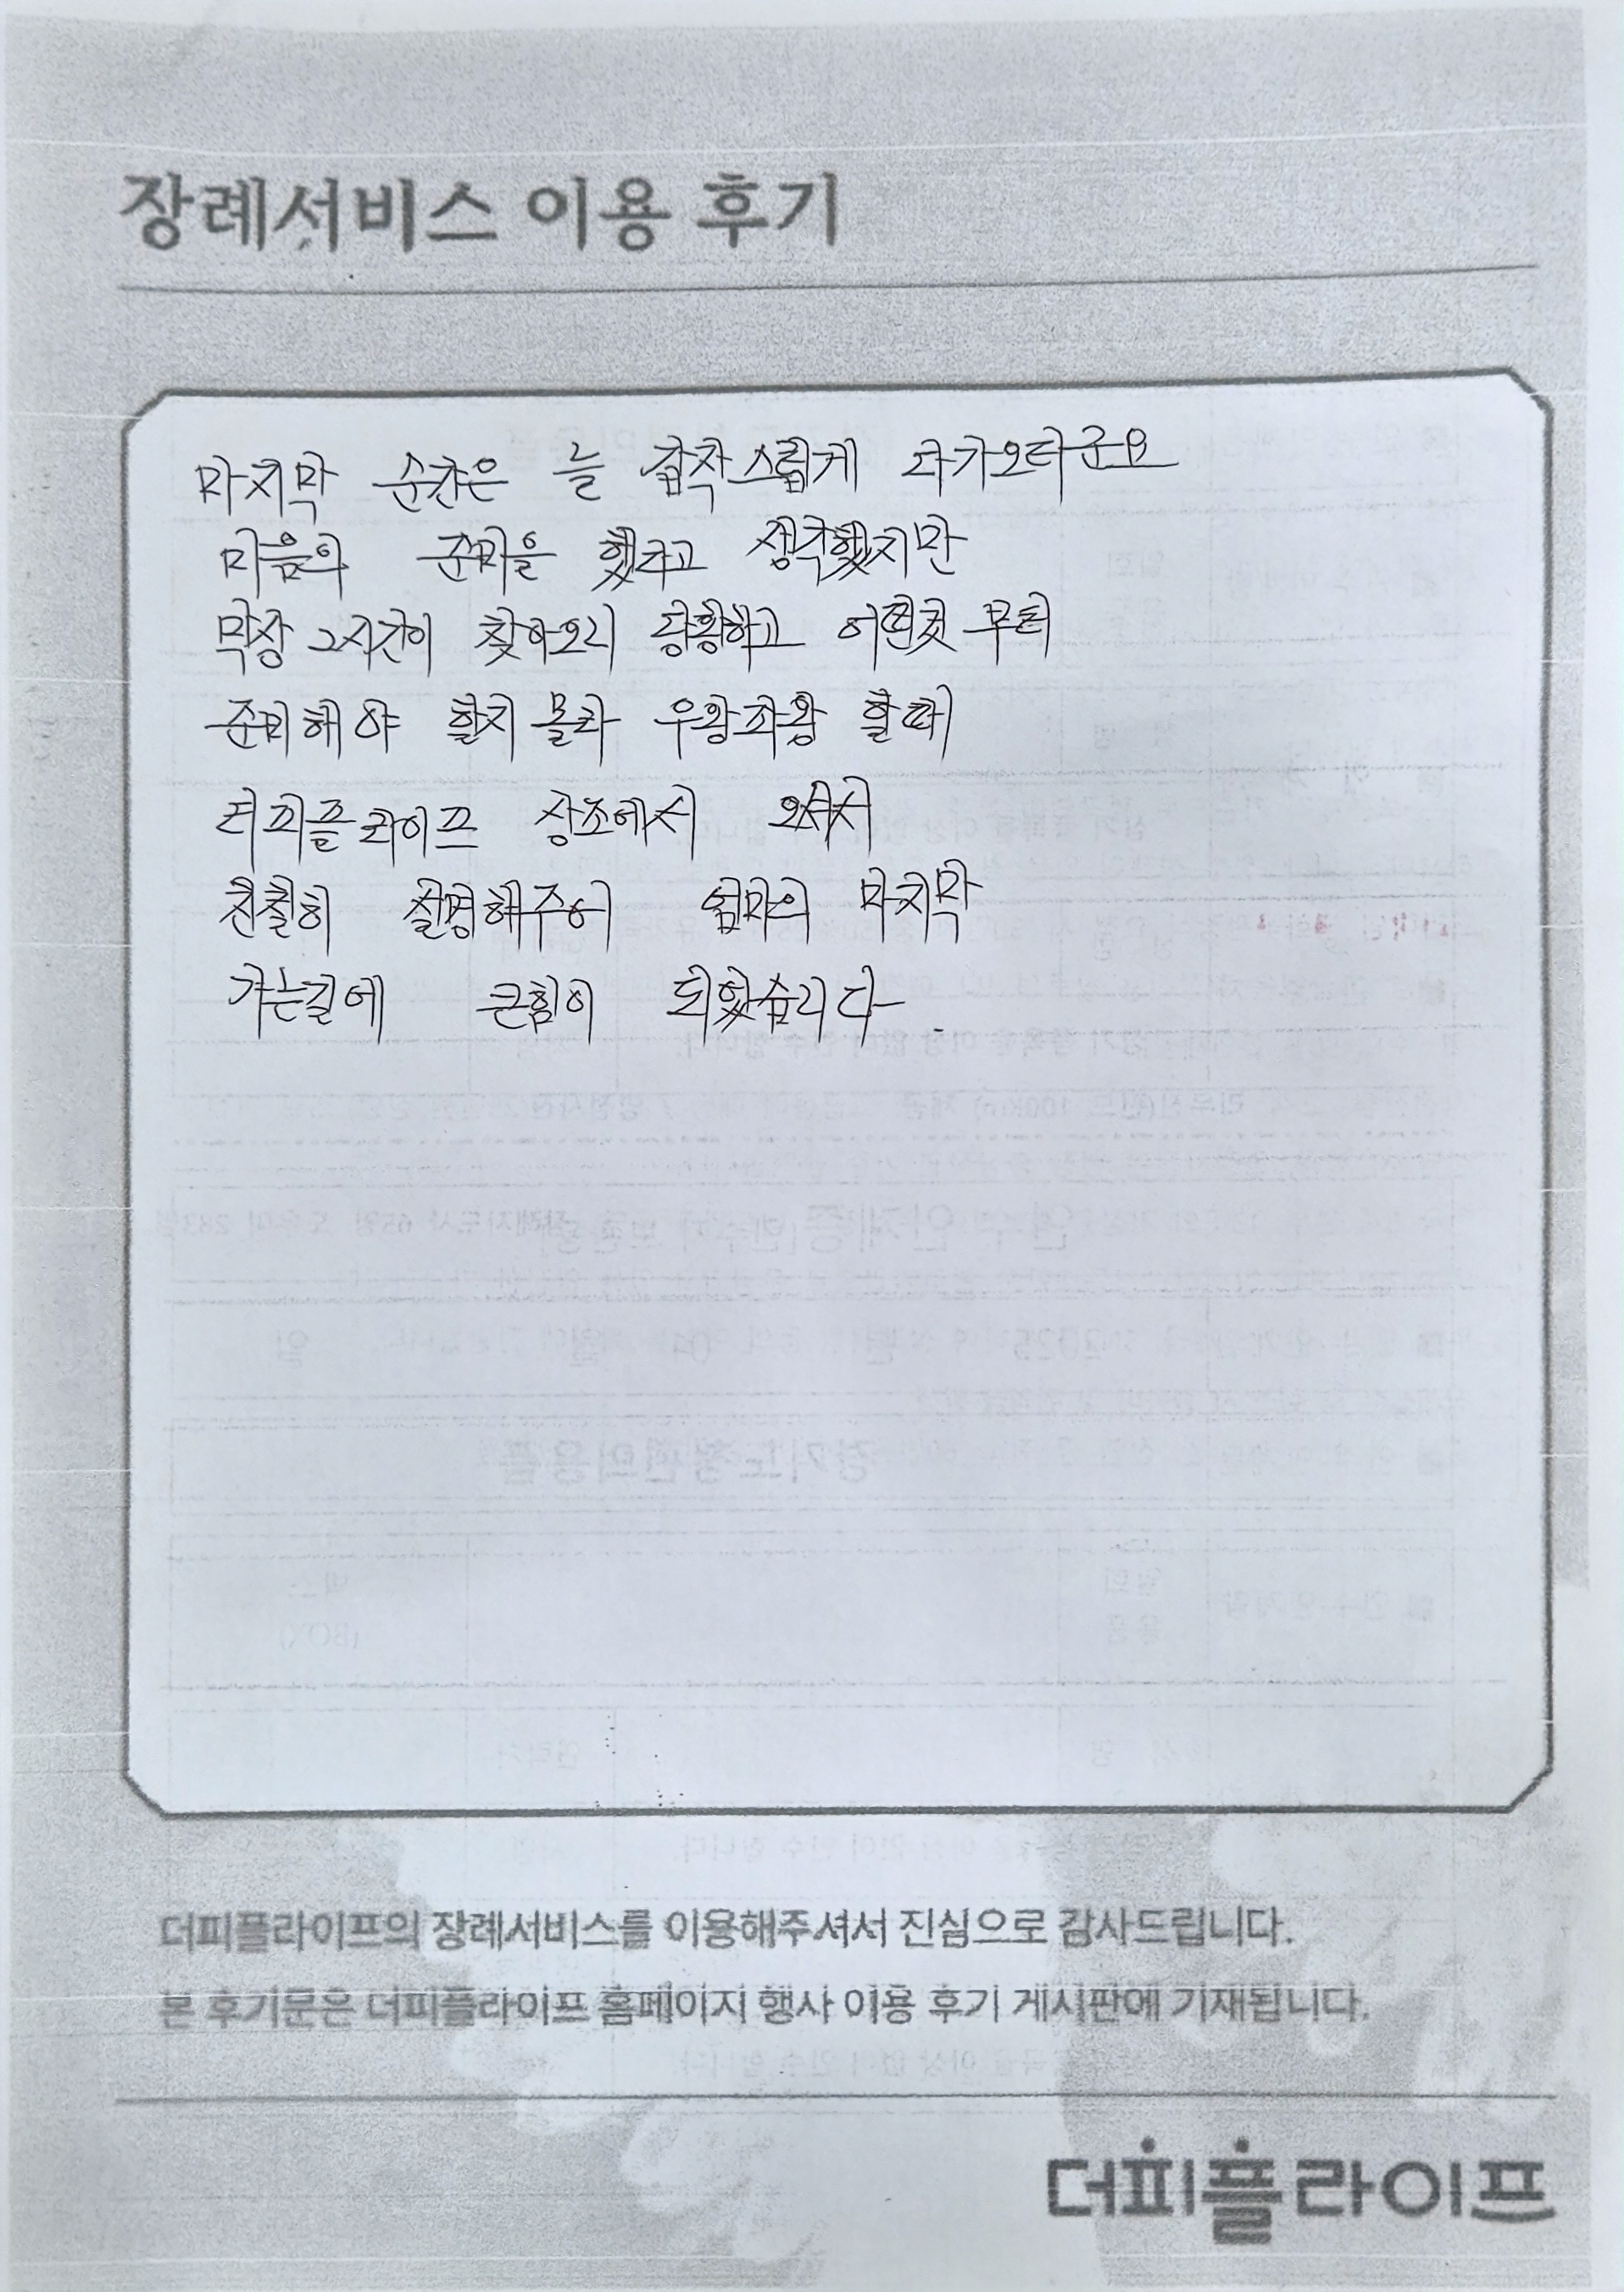 장례서비스 이용 후기
마지막 순간은 늘 갑작스럽게 다가오더군요
마음의 준비을 했다고 생각했지만
막상 그시간이 찾아오니 당황하고 어떤것 부터
준비해야 할지 몰라 우왕좌왕 할때
더피플라이프 상조에서 오셔서
친절히 설명해주어 엄마의 마지막
가는길에 큰힘이 되었습니다.
더피플라이프의 장례서비스를 이용해주셔서 진심으로 감사드립니다.
본 후기문은 더피플라이프 홈페이지 행사 이용 후기 게시판에 기재됩니다.
더피플라이프